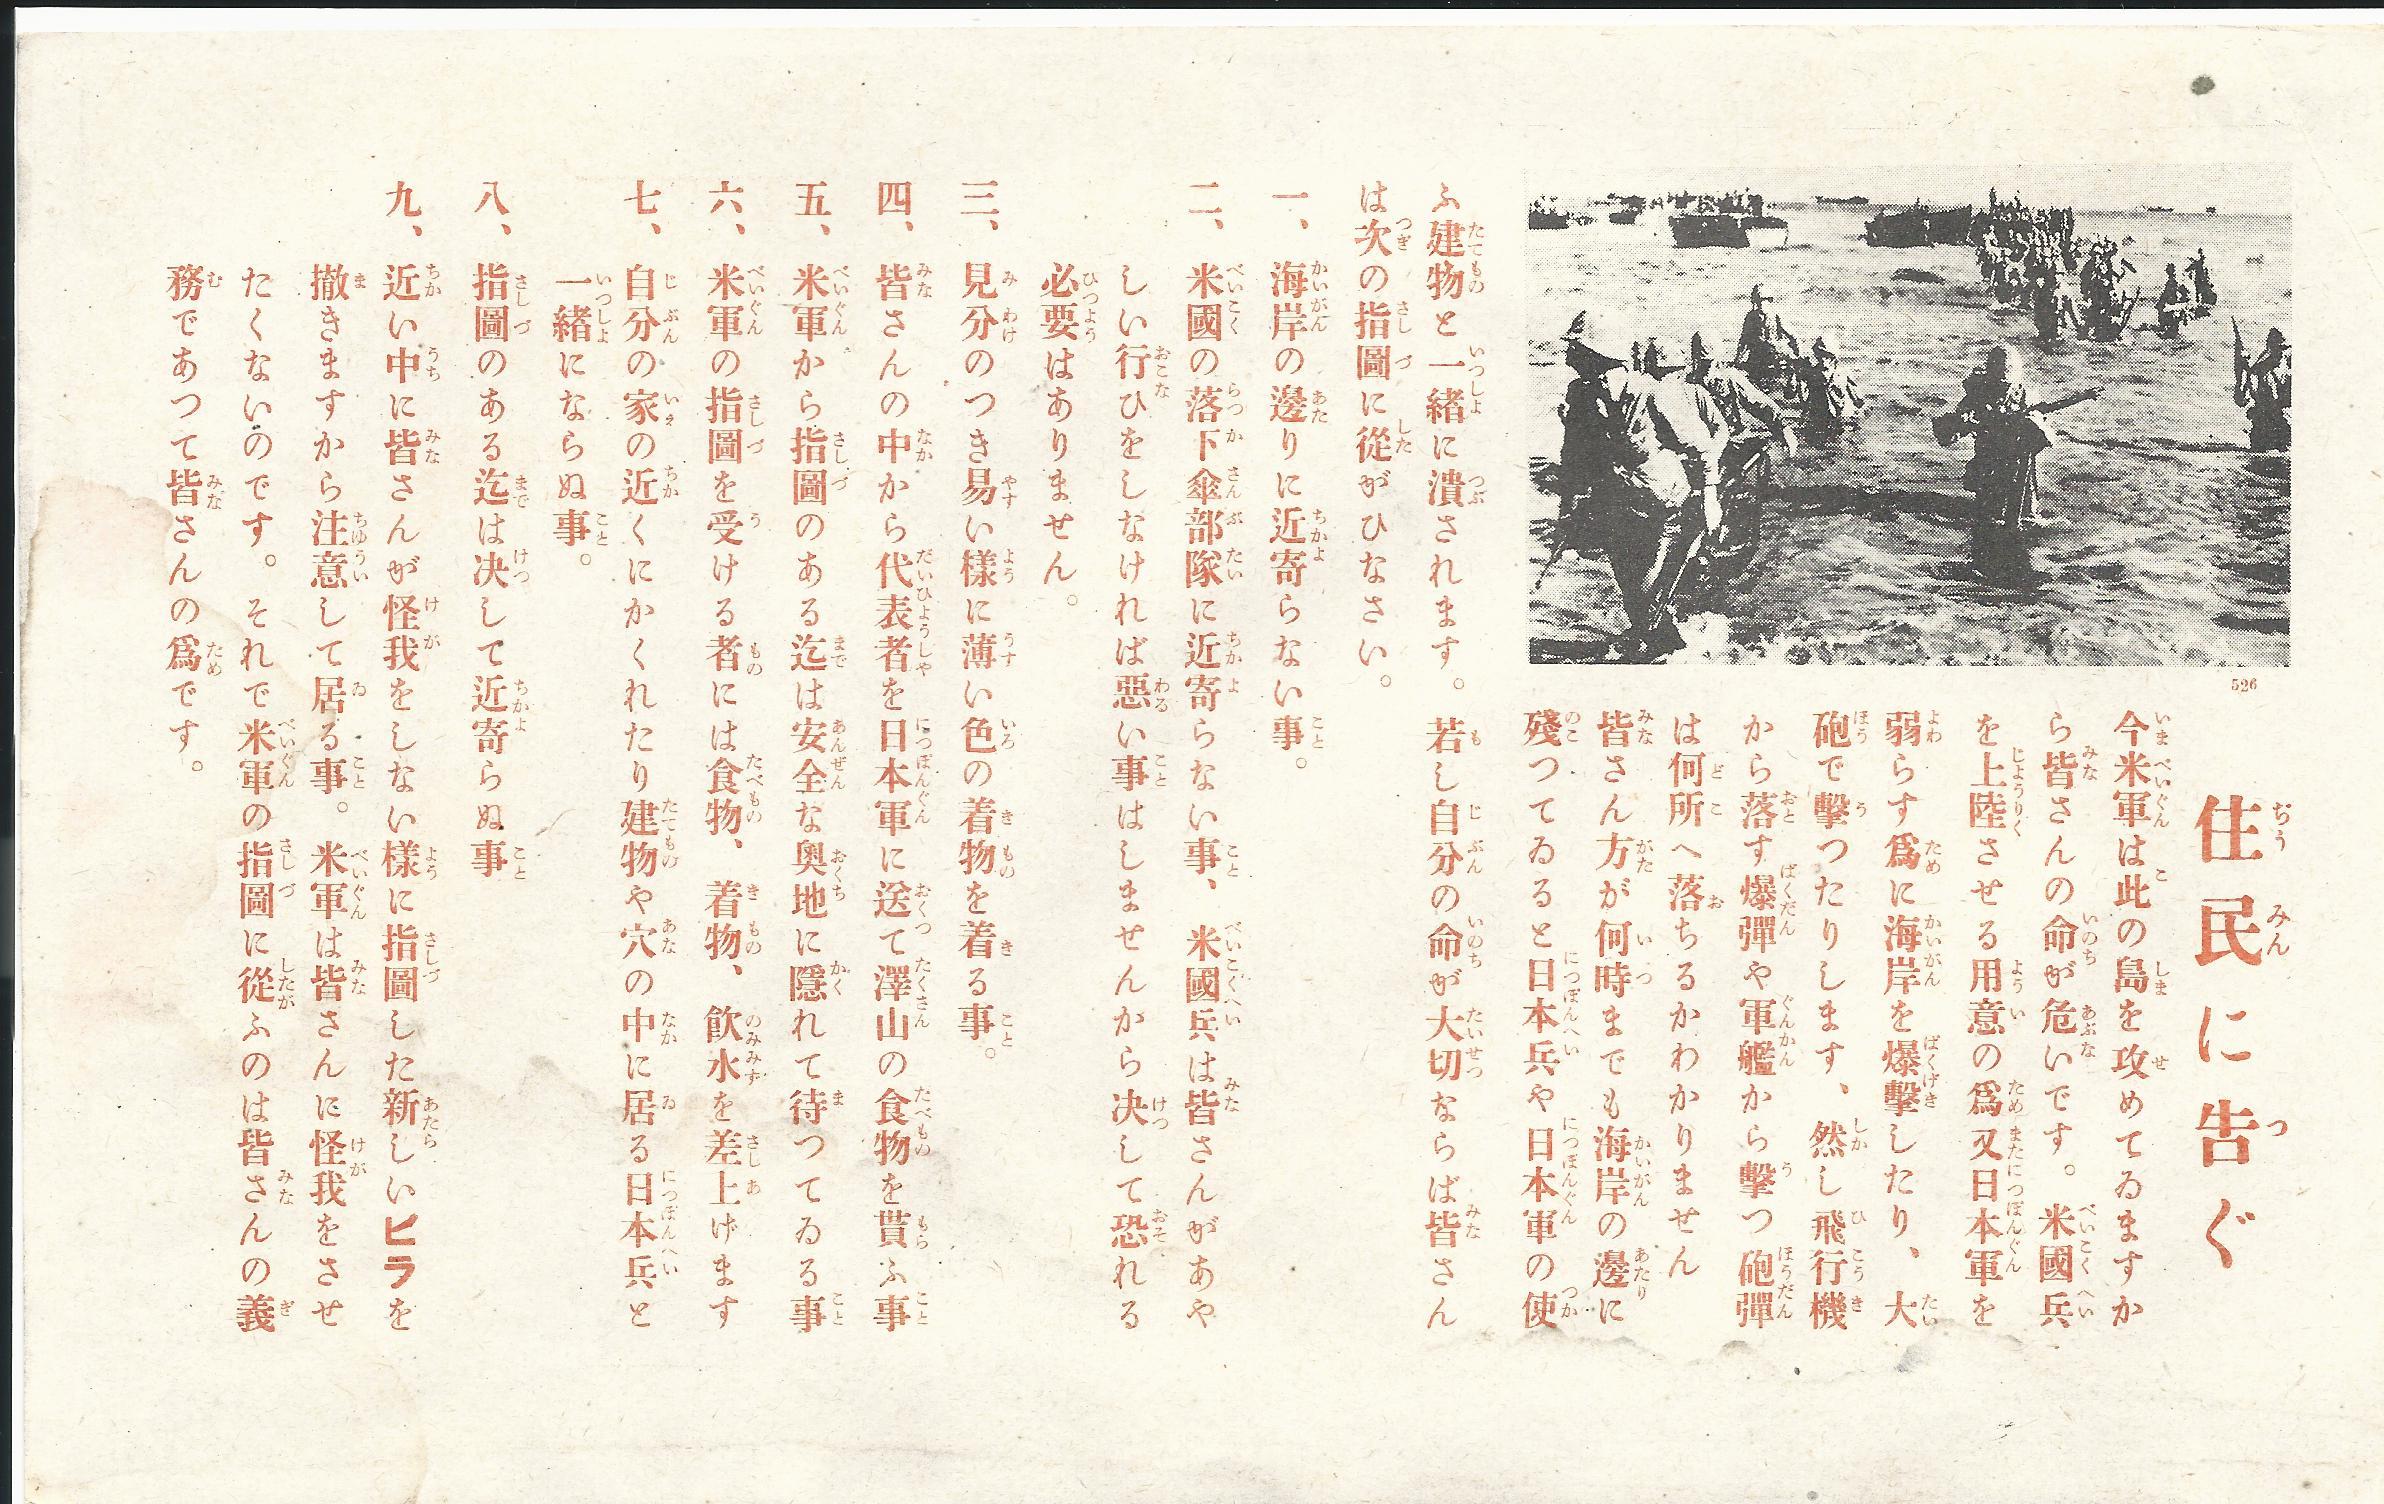 住民に告ぐ
今米軍は此の島を攻めてゐますか
ら皆さんの命が危いです。米國兵
を上陸させる用意の爲又日本軍を
弱らす爲に海岸を爆擊したり、大
砲で擊つたりします、然し飛行機
から落す爆彈や軍艦から擊つ砲彈
は何所へ落ちるかわかりません
皆さん方が何時までも海岸の邊に
殘つてゐると日本兵や日本軍の使
ふ建物と一緒に潰されます。若し自分の命が大切ならば皆さん
は次の指圖に從がひなさい。
一、海岸の邊りに近寄らない事。
二、米國の落下傘部隊に近寄らない事、米國兵は皆さんがあや
しい行ひをしなければ惡い事はしませんから決して恐れる
必要はありません。
三、見分のつき易い樣に薄い色の着物を着る事。
四、皆さんの中から代表者を日本軍に送て澤山の食物を貰ふ事
五、米軍から指圖のある迄は安全な奥地に隱れて待つてゐる事
六、米軍の指圖を受ける者には食物、着物、飮水を差上げます
七、自分の家の近くにかくれたり建物や穴の中に居る日本兵と
一緒にならぬ事。
八、指圖のある迄は決して近寄らぬ事
九、近い中に皆さんが怪我をしない樣に指圖した新しいビラを
撤きますから注意して居る事。米軍は皆さんに怪我をさせ
たくないのです。それで米軍の指圖に從ふのは皆さんの義
務であつて皆さんの爲です。
526